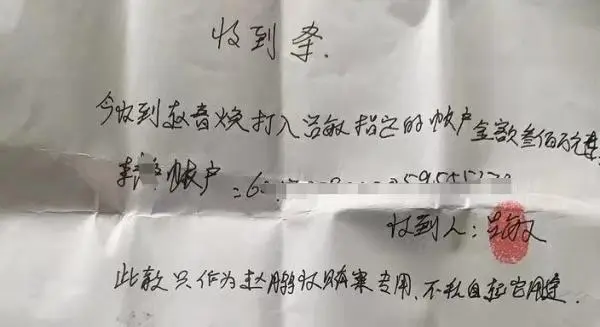 收到条.
今收到赵音焕打入吕敏指定的帐户金额叁佰万元整
帐户:6
收到人:吕敏
此款只作为赵鹏收赃案专用、不私自起它用途.